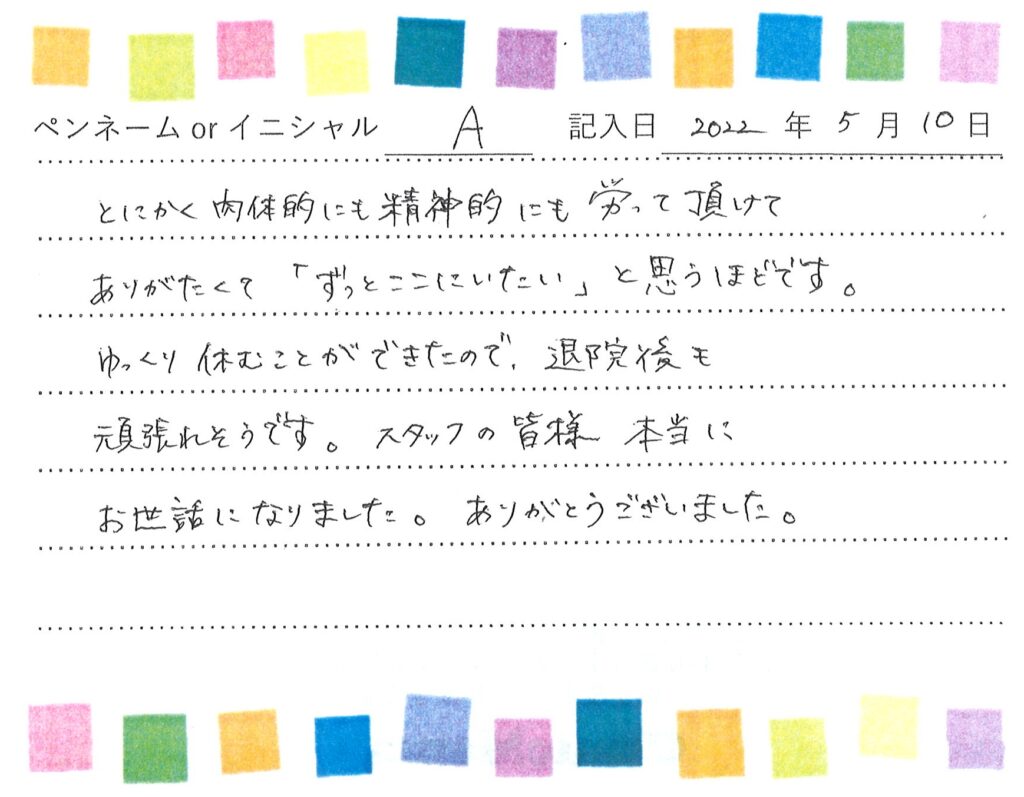 ペンネームorイニシャル A 記入日 2022 年 5 月 10 日
とにかく肉体的にも精神的にも労って頂けて
ありがたくて「ずっとここにいたい」と思うほどです。
ゆっくり休むことができたので、退院後も
頑張れそうです。スタッフの皆様 本当に
お世話になりました。ありがとうございました。